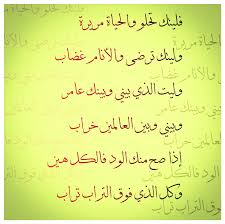 فليتك تحلو والحياة مريرة
وليتك ترضى والأنام غضاب
وليت الذي بيني وبينك عامر
وبيني وبين العالمين خراب
إذا صح منك الود فالكل هين
وكل الذي فوق التراب تراب